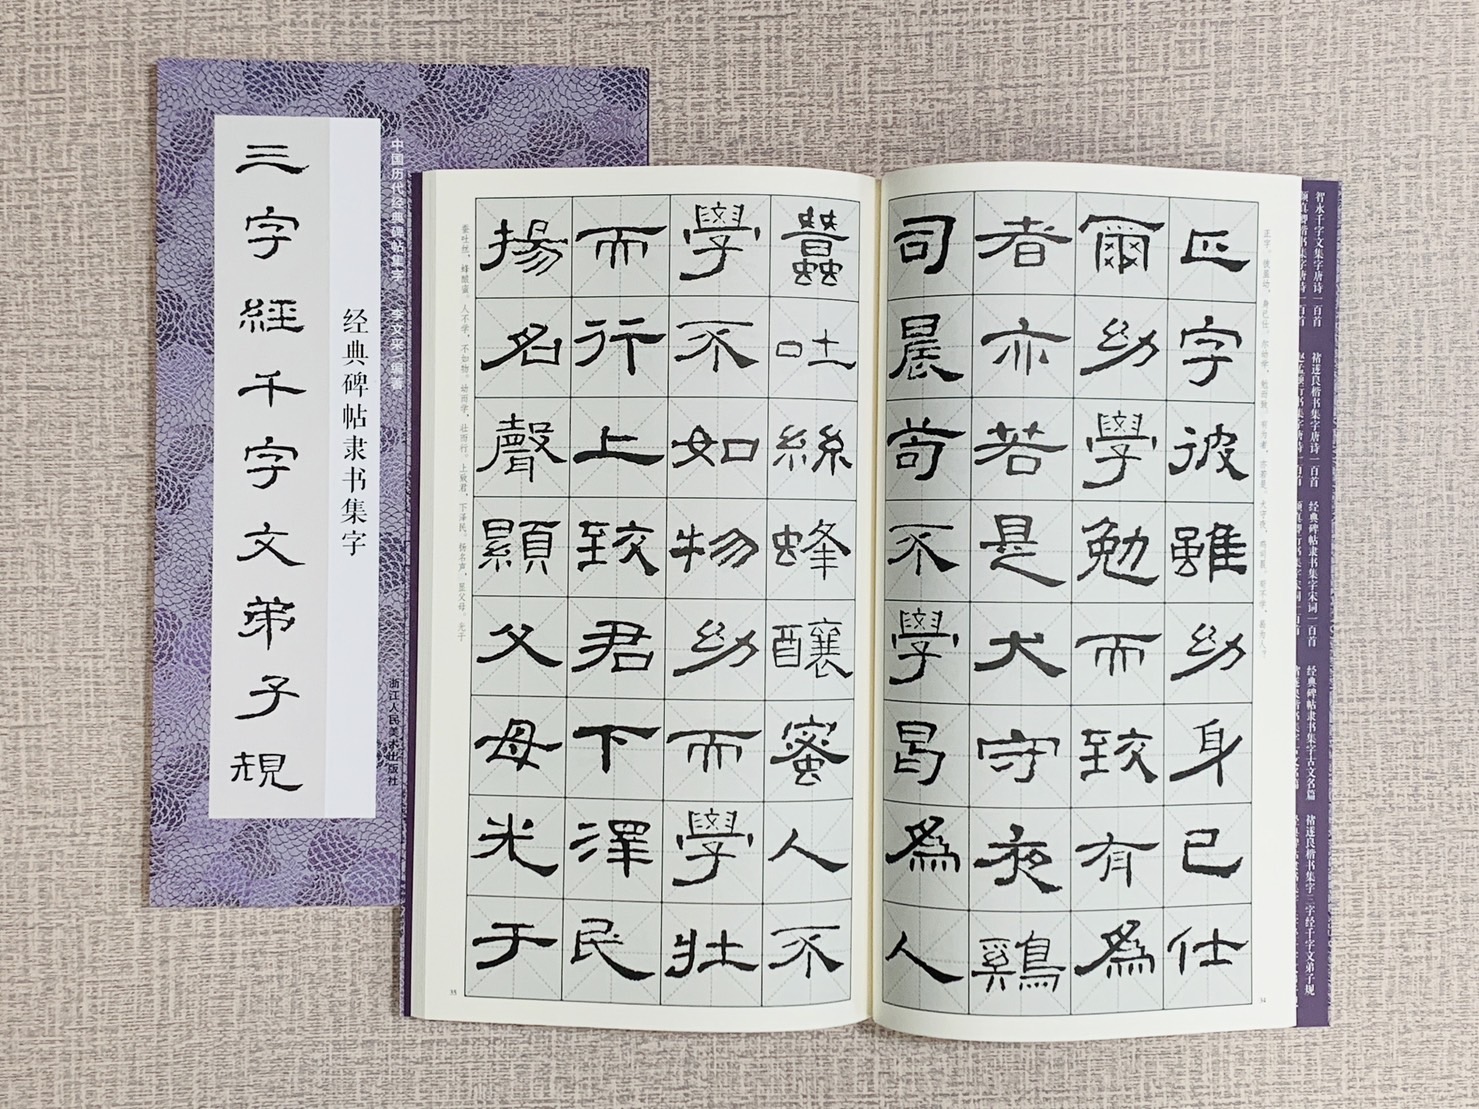 三字經千字文弟子規
经典碑帖隶书集字
中国历代经典碑帖集字 李文采/编著
浙江人民美术出版社
正字彼雖幼身已仕
爾幼學勉而致有為
者亦若是犬守夜鷄
司晨苟不學曷為人
正字。彼虽幼，身已仕。尔幼学，勉而致。有为者，亦若是。犬守夜，鸡司晨。苟不学，曷为人？
34
蠶吐絲蜂釀蜜人不
學不如物幼而學壯
而行上致君下澤民
揚名聲顯父母光于
蚕吐丝，蜂酿蜜。人不学，不如物。幼而学，壮而行。上致君，下泽民。扬名声，显父母。光于
35
智永千字文集字唐诗一百首
褚遂良楷书集字唐诗一百首
经典碑帖隶书集字宋词一百首
经典碑帖隶书集字古文名篇
褚遂良楷书集字三字经千字文弟子规